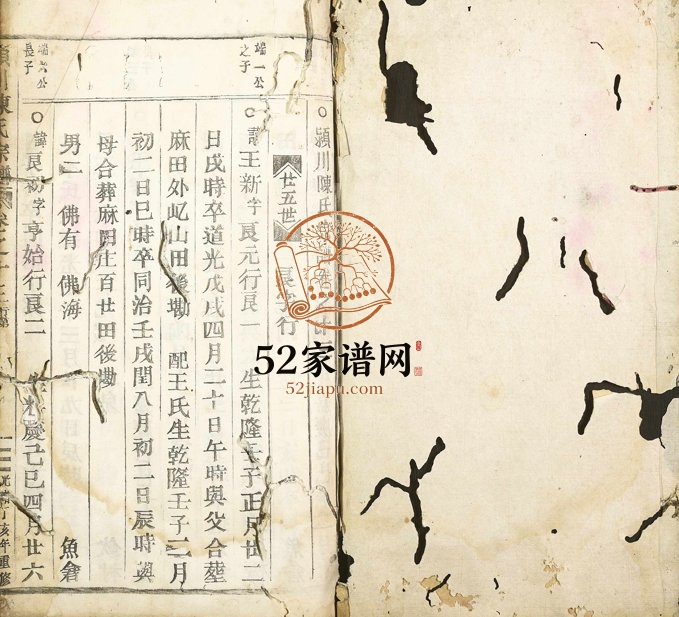 潁川陳氏
廿五世 良字行
端一公
之子
諱王新字良元行良一 生乾隆壬子正月廿二
日戌時卒道光戊戌四月二十日午時與父合塟
麻田外屹山田後墈 配王氏生乾隆壬子二月
初二日巳時卒同治壬戌閏八月初二日辰時與
母合葬麻田庄百廿田後墈
男二 佛有 佛海 魚倉
端六公
長子
諱良初字亨始行良二 生嘉慶己巳四月廿六
陳氏宗譜
亥年重修
52家谱网
52jiapu.com